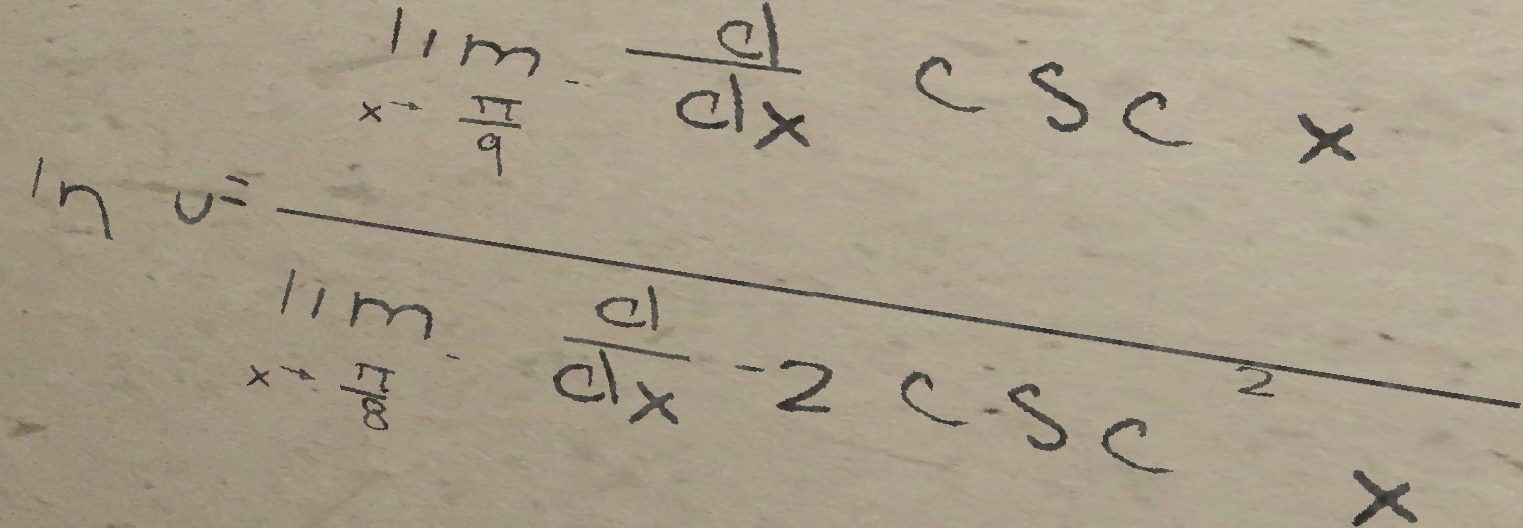 \ln v = \frac{\lim_{x \to \frac{\pi}{9}^{-}} \frac{d}{dx} \csc x}{\lim_{x \to \frac{\pi}{8}^{-}} \frac{d}{dx} -2 \csc^{2} x}